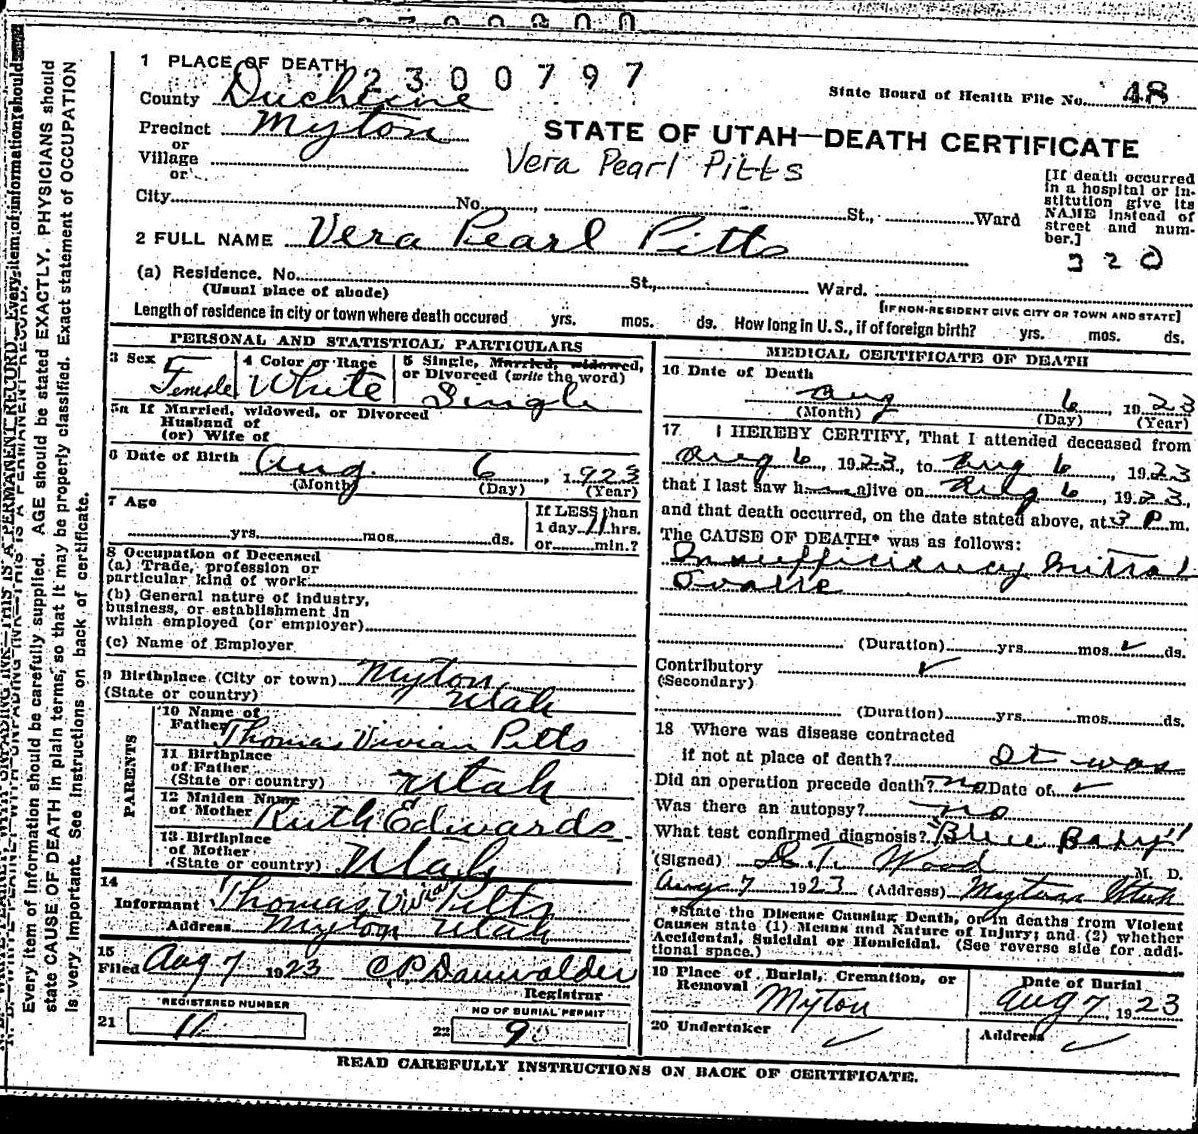 1 PLACE OF DEARTH 2300797
County Duchesne
State Board of Health File No. 48
Precinct Myton
STATE OF UTAH—DEATH CERTIFICATE
or
Village
Vera Pearl Pitts
or
[If death occurred in a hospital or institution give its NAME instead of street and number.]
City No. St., Ward
2 FULL NAME Vera Pearl Pitts
320
(a) Residence. No. St., Ward.
(Usual place of abode) [IF NON-RESIDENT GIVE CITY OR TOWN AND STATE]
Length of residence in city or town where death occured yrs. mos. ds. How long in U. S., if of foreign birth? yrs. mos. ds.
PERSONAL AND STATISTICAL PARTICULARS
3 Sex Female
4 Color or Race White
5 Single, Married, widowed, or Divorced (write the word) Single
5a If Married, widowed, or Divorced
Husband of
(or) Wife of
6 Date of Birth Aug. 6, 1923
(Month) (Day) (Year)
7 Age
yrs. mos. ds.
If LESS than
1 day 11 hrs.
or min.?
8 Occupation of Deceased
(a) Trade, profession or
particular kind of work
(b) General nature of industry,
business, or establishment in
which employed (or employer)
(c) Name of Employer
9 Birthplace (City or town) Myton
(State or country) Utah
PARENTS
10 Name of Father Thomas Vivian Pitts
11 Birthplace
of Father
(State or country) Utah
12 Maiden Name
of Mother Ruth Edwards
13 Birthplace
of Mother
(State or country) Utah
14
Informant Thomas Vivian Pitts
Address Myton Utah
15
Filed Aug 7 1923
Registrar
REGISTERED NUMBER
21 11
NO OF BURIAL PERMIT
22 9
MEDICAL CERTIFICATE OF DEATH
16 Date of Death
Aug 6, 1923
(Month) (Day) (Year)
17 I HEREBY CERTIFY, That I attended deceased from
Aug 6, 1923, to Aug 6, 1923
that I last saw h alive on Aug 6, 1923,
and that death occurred, on the date stated above, at 3 P. m.
The CAUSE OF DEATH* was as follows:
Insufficiency Mitral
(Duration) yrs. mos. ds.
Contributory
(Secondary)
(Duration) yrs. mos. ds.
18 Where was disease contracted
if not at place of death? It was
Did an operation precede death? no Date of
Was there an autopsy? no
What test confirmed diagnosis? "Blue Baby"
(Signed) Wood M. D.
Aug 7 1923 (Address) Myton Utah
*State the Disease Causing Death, or in deaths from Violent
Causes state (1) Means and Nature of Injury; and (2) whether
Accidental, Suicidal or Homicidal. (See reverse side for additional space.)
19 Place of Burial, Cremation, or
Removal Myton
Date of Burial
Aug 7, 1923
20 Undertaker
Address
READ CAREFULLY INSTRUCTIONS ON BACK OF CERTIFICATE.
Every item of information should be carefully supplied. AGE should be stated EXACTLY. PHYSICIANS should
state CAUSE OF DEATH in plain terms, so that it may be properly classified. Exact statement of OCCUPATION
is very important. See instructions on back of certificate.